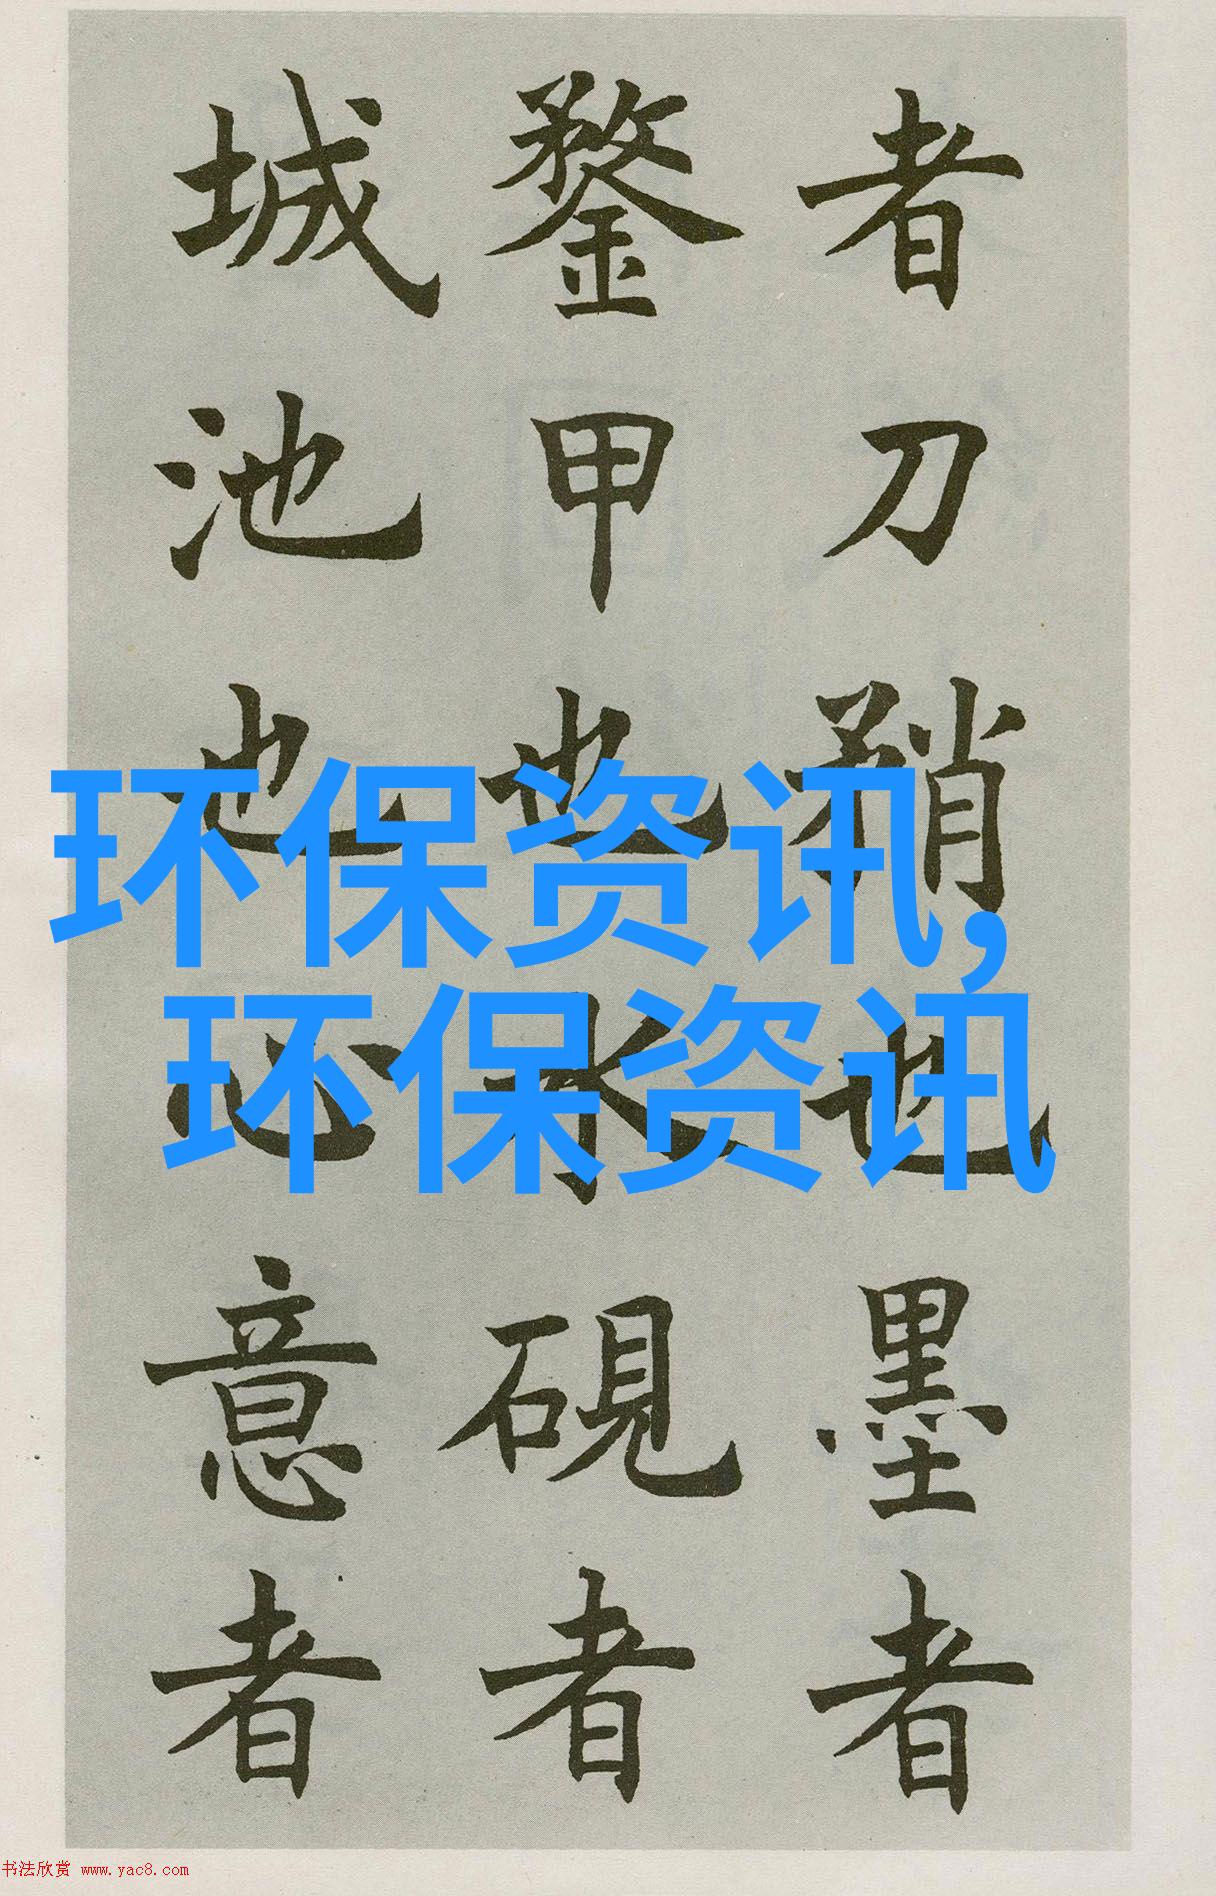 者刀矟也墨者
鍪甲也水硯者
城池也心意者
环保资讯,
环保资讯
书法欣赏 www.yac8.com